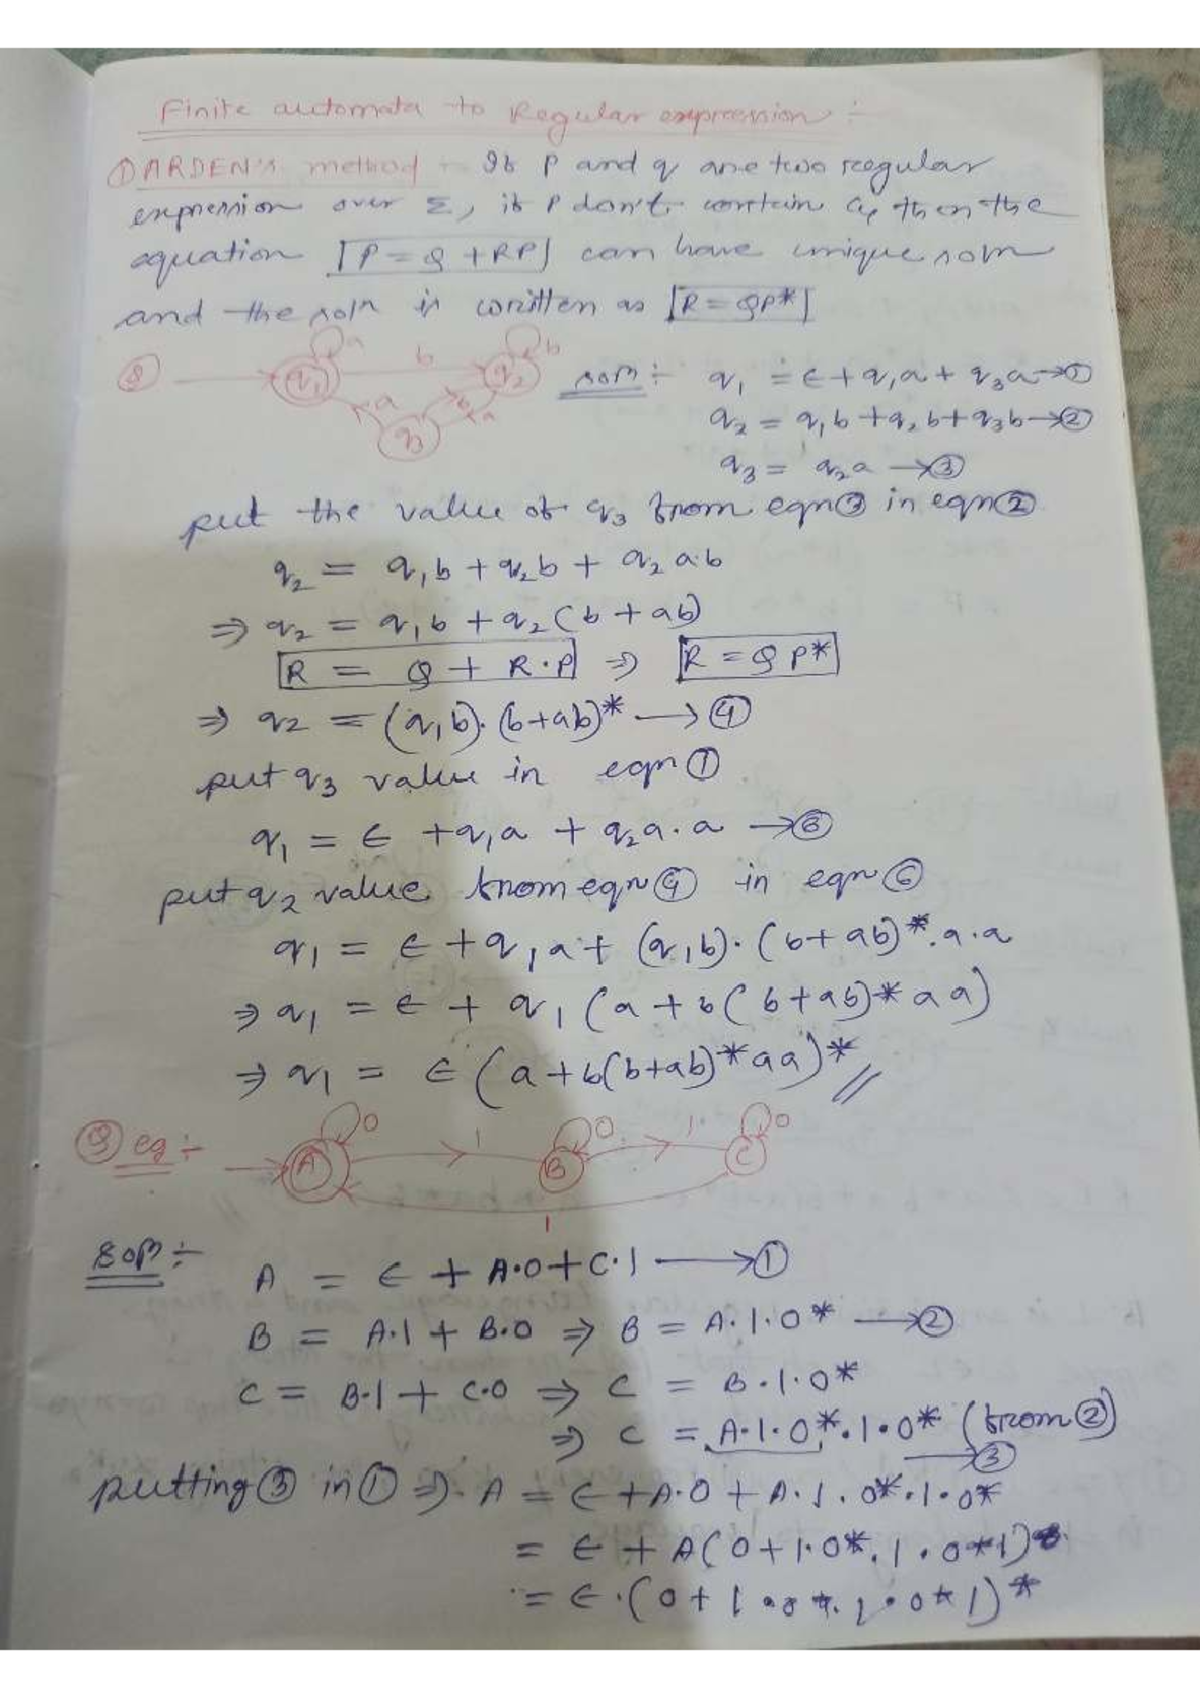 Finite automata to Regular expression :-
① ARDEN's method - If P and q are two regular
expression over Σ, if P don't contain ϵ, then the
equation P = Q + RP can have unique soln
and the soln is written as R = QP*
Q q1 a b q2 b a b a q3
soln :- q1 = ϵ + q1a + q3a → ①
q2 = q1b + q2b + q3b → ②
q3 = q2a → ③
put the value of q3 from eqn ③ in eqn ②
q2 = q1b + q2b + q2 a·b
⇒ q2 = q1b + q2(b + ab)
R = Q + R·P ⇒ R = QP*
⇒ q2 = (q1b)·(b+ab)* → ④
put q3 value in eqn ①
q1 = ϵ + q1a + q2a·a → ⑥
put q2 value from eqn ④ in eqn ⑥
q1 = ϵ + q1a + (q1b)·(b+ab)*·a·a
⇒ q1 = ϵ + q1(a + b(b+ab)*aa)
⇒ q1 = ϵ(a+b(b+ab)*aa)*//
Q eg :- A 0 1 B 0 1 C 0
1
Soln :- A = ϵ + A·0 + C·1 → ①
B = A·1 + B·0 ⇒ B = A·1·0* → ②
C = B·1 + C·0 ⇒ C = B·1·0*
⇒ C = A·1·0*·1·0* (from ②)
→ ③
putting ③ in ① ⇒ A = ϵ + A·0 + A·1·0*·1·0*
= ϵ + A(0+1·0*·1·0*1)
= ϵ·(0+1·0*·1·0*1)*